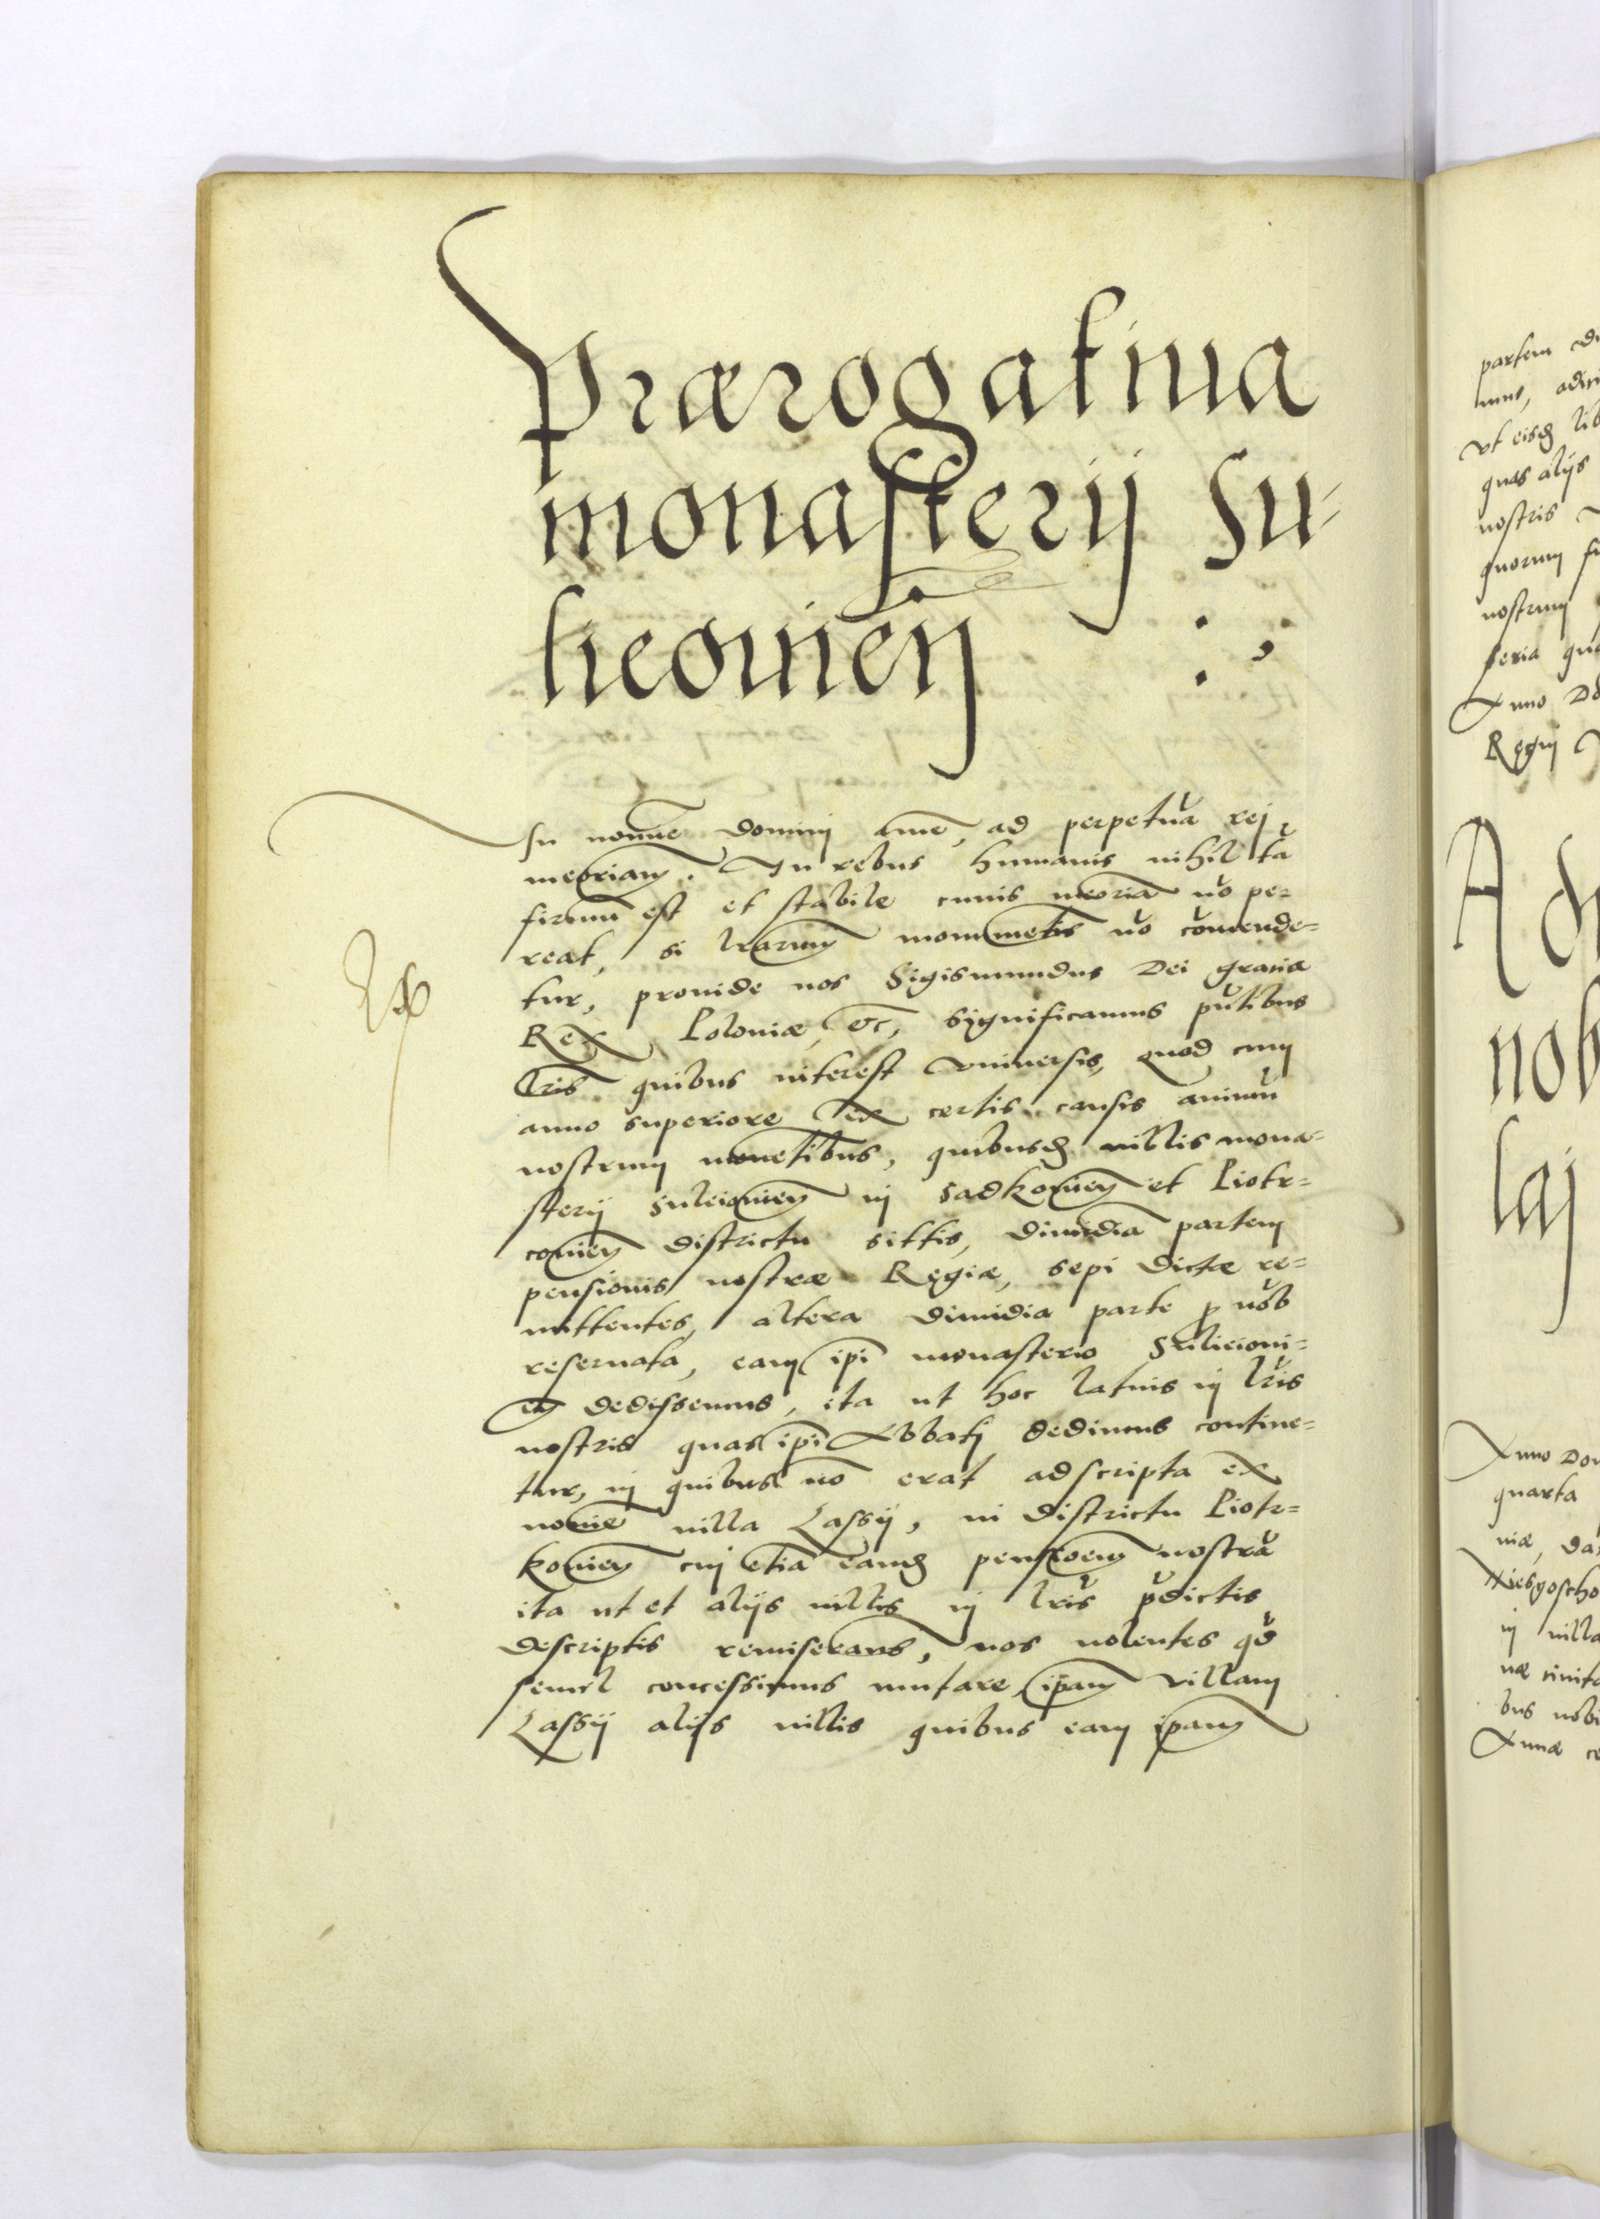 Prærogatiua
monasterij Su-
lieouień
In noīne domini amē, ad perpetuā rej
meōriam. In rebus humanis nihil tā
firmū est et stabile cuius meōria nō pe-
reat, si lrārum monumētis nō cōmende-
tur, prouide nos Sigismundus Dei gratia
Rex Poloniæ, etc, significamus pn̄tibus
lrīs quibus interest vniuersis, quod cum
anno superiore ex certis causis animū
nostrum mouētibus, quibusd villis mona-
sterij Suleiouień in Sadkouień et Piotr-
couień districtu sittis, dimidiā partem
pensionis nostræ Regiæ, sepi dictæ re-
mittentes, altera dimidia parte p nōb
reseruata, eam ipī monasterio Suliciouı-
eń dedissemus, ita ut hoc latius in lrīs
nostris quas ipī Abbatj dedimus contine-
tur, in quibus nō erat adscripta ex
noīne villa Lassij, in districtu Piotr-
kouień cuj etiā eand pensioem nostrā
ita ut et alijs villis in lrīs pdictis
descriptis remiserams, nos nolentes qd
semel concessimus mutare ipam villam
Lassij alijs villis quibus eam ipam
partem
mus,
vt eisd
quas alijs
nostris
quorum
nostrum
feria
Anno
Regni
A
nob
laj
Anno
quarta
niæ,
in villa
bus nobi